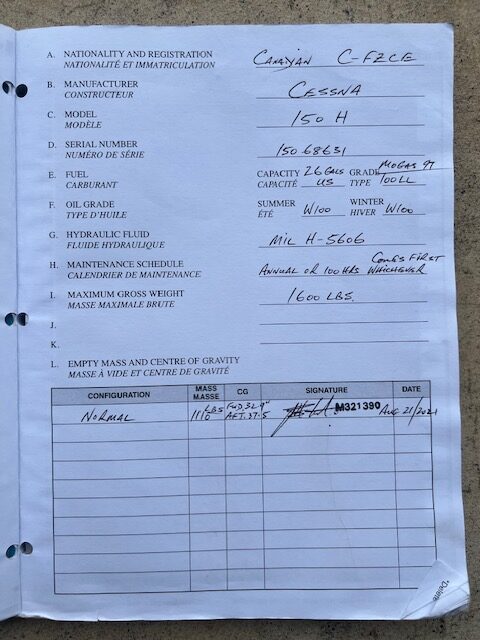 A. NATIONALITY AND REGISTRATION Canajian C-FZCE
NATIONALITÉ ET IMMATRICULATION
B. MANUFACTURER CESSNA
CONSTRUCTEUR
C. MODEL 150 H
MODÈLE
D. SERIAL NUMBER 15068631
NUMÉRO DE SÉRIE
E. FUEL CAPACITY 26 GALS GRADE MOGAS 97
CARBURANT CAPACITÉ US TYPE 100LL
F. OIL GRADE SUMMER W100 WINTER W100
TYPE D'HUILE ÉTÉ HIVER
G. HYDRAULIC FLUID MIL H-5606
FLUIDE HYDRAULIQUE
H. MAINTENANCE SCHEDULE COMES FIRST
CALENDRIER DE MAINTENANCE ANNUAL OR 100 HRS WHICHEVER
I. MAXIMUM GROSS WEIGHT 1600 LBS.
MASSE MAXIMALE BRUTE
J.
K.
L. EMPTY MASS AND CENTRE OF GRAVITY
MASSE À VIDE ET CENTRE DE GRAVITÉ
CONFIGURATION MASS MASSE CG SIGNATURE DATE
NORMAL 1110 LBS FWD. 32.9" AFT. 37.5 M321390 AUG 21/2021
*Delete